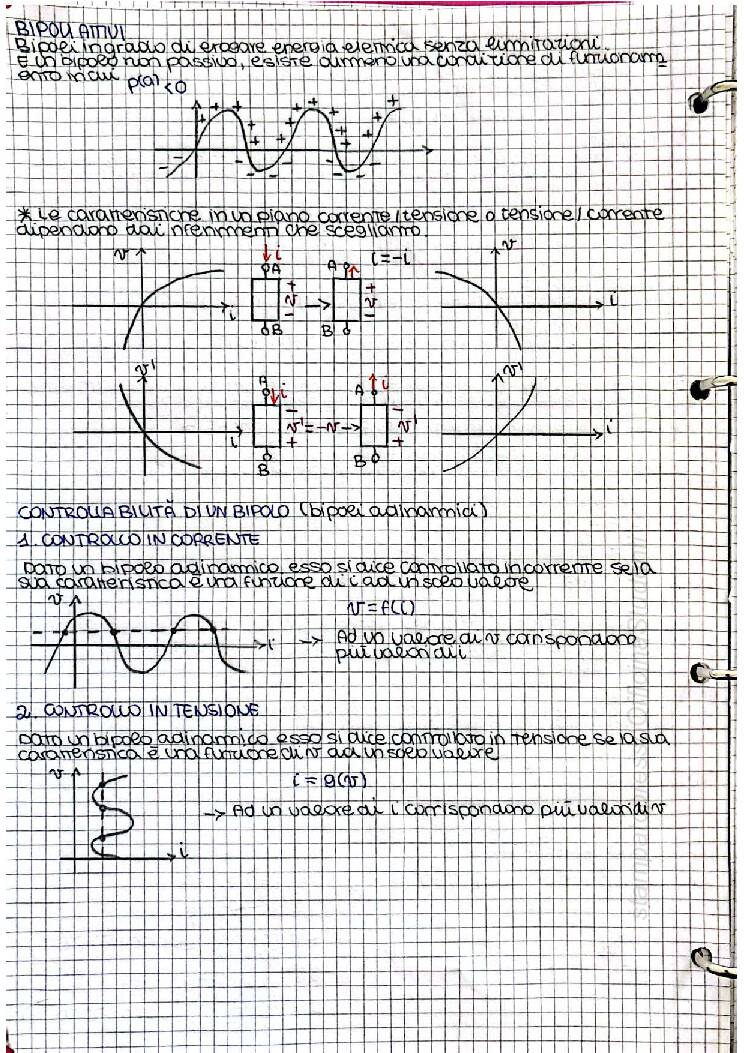 BIPOLI ATTIVI
Bipoli in grado di erogare energia elettrica senza limitazioni.
È un bipolo non passivo, esiste almeno una condizione di funzionam
ento in cui p(a) <0
* Le caratteristiche in un piano corrente/tensione o tensione/corrente
dipendono dai riferimenti che scegliamo.
v i A B + v - → A B + v - i=-i v i
v' i A B - v'=-v → + A B i - v' + v' i
CONTROLLABILITÀ DI UN BIPOLO (bipoli adinamici)
1. CONTROLLO IN CORRENTE
Dato un bipolo adinamico esso si dice controllato in corrente se la
sua caratteristica è una funzione di i ad un solo valore
v v=f(i)
i → Ad un valore di v corrispondono
più valori di i
2. CONTROLLO IN TENSIONE
Dato un bipolo adinamico esso si dice controllato in tensione se la sua
caratteristica è una funzione di v ad un solo valore
v i=g(v)
→ Ad un valore di i corrispondono più valori di v
i